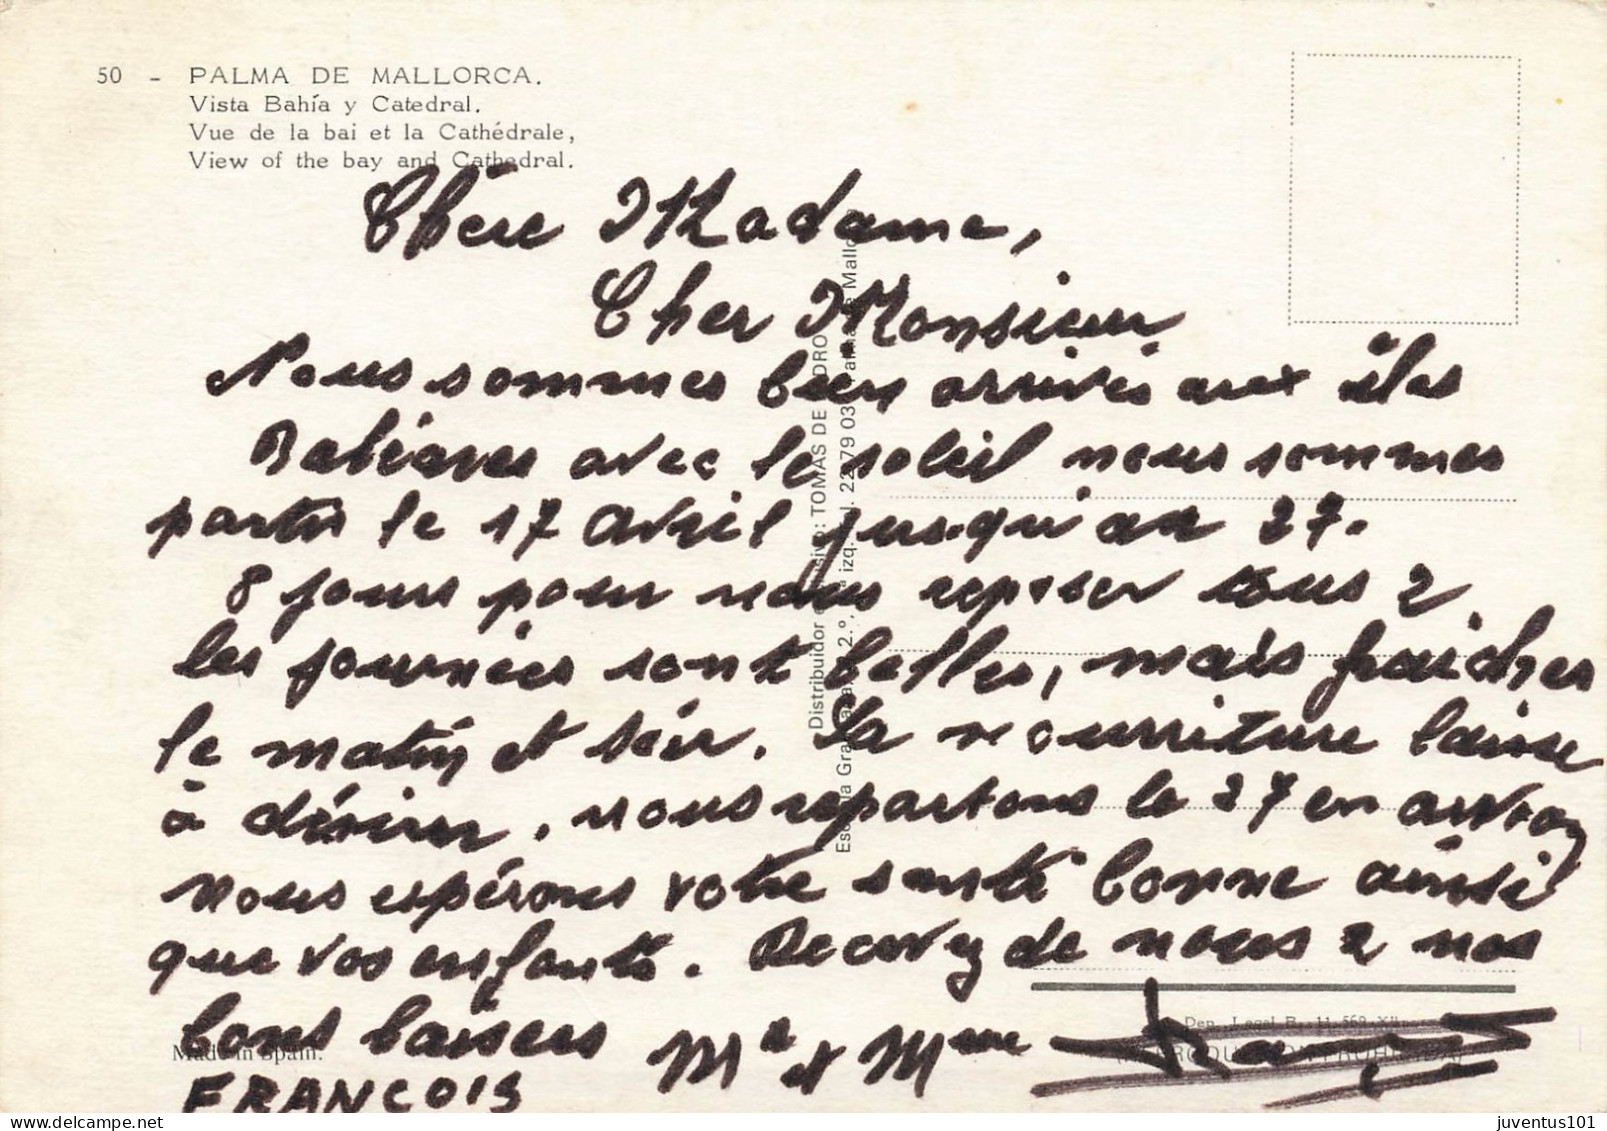 50 - PALMA DE MALLORCA.
Vista Bahía y Catedral.
Vue de la bai et la Cathédrale,
View of the bay and Cathedral.
Chère Madame,
Cher Monsieur
Nous sommes bien arrivés aux îles
Baléares avec le soleil nous sommes
partis le 17 avril jusqu'au 27.
8 jours pour nous reposer tous 2.
les journées sont belles, mais fraiches
le matin et soir. La nourriture laisse
à désirer. nous repartons le 27 en avion
nous espérons votre santé bonne ainsi
que vos enfants. Recevez de nous 2 nos
bons baisers Mr et Mme
FRANCOIS
Made in Spain.
Distribuidor exclusivo: TOMAS DE
2.º, izq. 22 79 03
Dep. Legal B. 11.569-XII
juventus101